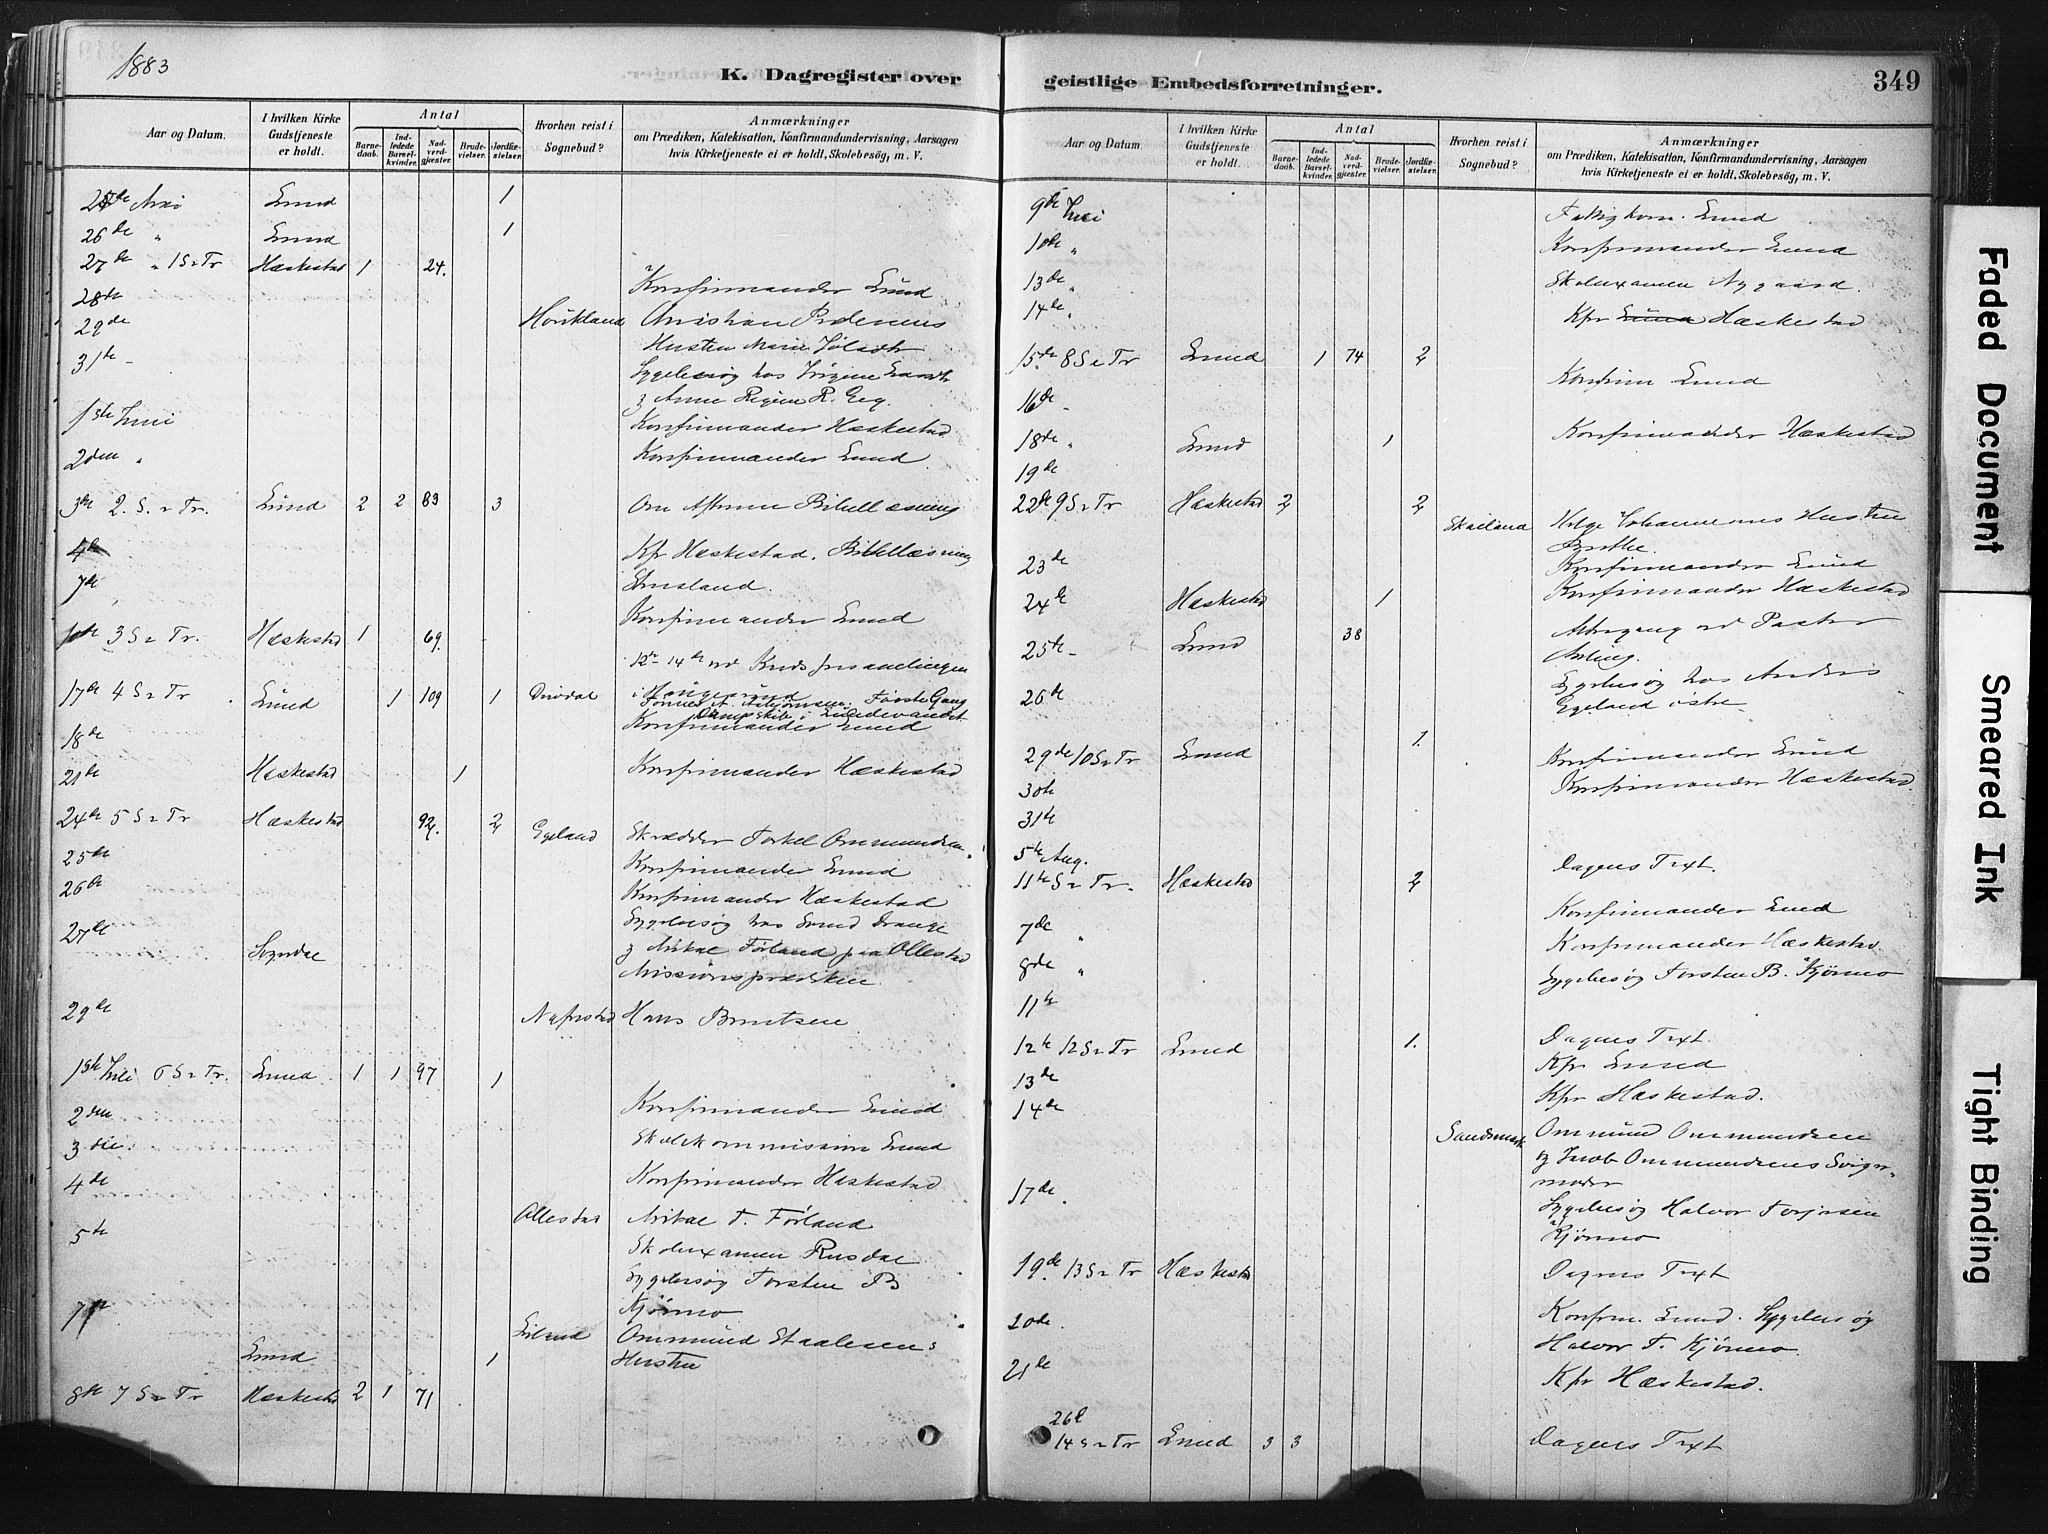 1883
K. Dagregister over
Aar og Datum.
I hvilken Kirke Gudstjeneste er holdt.
Antal
Barnedaab.
Indledede Barselkvinder.
Nadverdgjæster.
Brudevielser.
Jordfæstelser.
Hvorhen reist i Sognebud?
Anmærkninger
om Prædiken, Katekisation, Konfirmandundervisning, Aarsagen
hvis Kirketjeneste ei er holdt, Skolebesøg, m. V.
25de Mai Lund 1
26de " Lund 1
27de " 1 S e Tr Hæskestad 1 24.
28de Konfirmander Lund
29de Houkland Christian Pedersens
Hustru Marie
31te Sygebesøg hos
Konfirmander Hæskestad
1ste Juni
2den " Konfirmander Lund.
3de 2. S. e Tr. Lund 2 2 83 3 Om Aftenen Bibellæsning
4de Kfr Hæskestad. Bibellæsning
7de
Konfirmander Lund
3 S e Tr. Hæskestad 1 69.
12te - 14de ved Kredsforsamlingen
17de 4 S e Tr Lund 1 109 1 Drivdal i Haugesund
Første Gang
Dampskib i Lundevandet
18de Konfirmander Lund
21de Hæskestad 1 Konfirmander Hæskestad
24de 5 S e Tr Hæskestad 92. 2 Egeland Skrædder Torkel Ommundsen.
25de Konfirmander Lund
26de Konfirmander Hæskestad
27de Sygebesøg hos Svend Drange
Sogndal & Mikal Førland paa Ollestad
Missionsprædiken.
29de Hans Berntsen
1ste Juli 6 S e Tr. Lund 1 1 97 1
2den Konfirmander Lund
3die Skolekommission Lund
4de Konfirmander Hæskestad
5te Ollestad Mikal T. Førland
Skolexamen Rusdal
Sygebesøg Torsten B
7de Kjørmo
Ommund Staalesens
Lund 1 Hustru
8de 7 S e Tr Hæskestad 2 1 71
geistlige Embedsforretninger.
349
Aar og Datum
I hvilken Kirke Gudstjeneste er holdt.
Antal
Barnedaab.
Indledede Barselkvinder.
Nadverdgjæster.
Brudevielser.
Jordfæstelser.
Hvorhen reist i Sognebud?
Anmærkninger
om Prædiken, Katekisation, Konfirmandundervisning, Aarsagen
hvis Kirketjeneste ei er holdt, Skolebesøg, m. V.
9de Juli Fattigkom. Lund
10de " Konfirmander Lund
13de " Skolexamen Nygaard.
14de " Kfr Lund Hæskestad
15de 8 S e Tr Lund 1 74 2
16de - Konfirm Lund
18de " Lund 1 Konfirmander Hæskestad
19de
22de 9 S e Tr Hæskestad 2 2
Skailand Helge Johannesens Hustru
Berthe.
23de Konfirmander Lund
24de Hæskestad 1 Konfirmander Hæskestad
25de - Lund 38 Altergang ved Pastor
26de Sygebesøg hos Anders
Egeland østre
29de 10 S e Tr Lund 1.
30te Konfirmander Lund
31te Konfirmander Hæskestad.
5te Aug.
11te S e Tr. Hæskestad 2 Dagens Text.
7de " Konfirmander Lund
8de " Konfirmander Hæskestad.
11te Sygebesøg Torsten B. Kjørmo
12te 12 S e Tr Lund 1. Dagens Text.
13de Kfr Lund
14de Kfr Hæskestad.
Sandsmark Ommund Ommundsen
og Jacob Ommundsens Sviger-
moder
17de. Sygebesøg Halvor Torjersen
Kjørmo
19de. 13 S e Tr Hæskestad Dagens Text
20de. Konfirm. Lund. Sygebesøg
Halvor T. Kjørmo.
21de Kfr Hæskestad.
26de
14 S e Tr Lund 3 3 Dagens Text
Faded Document
Smeared Ink
Tight Binding